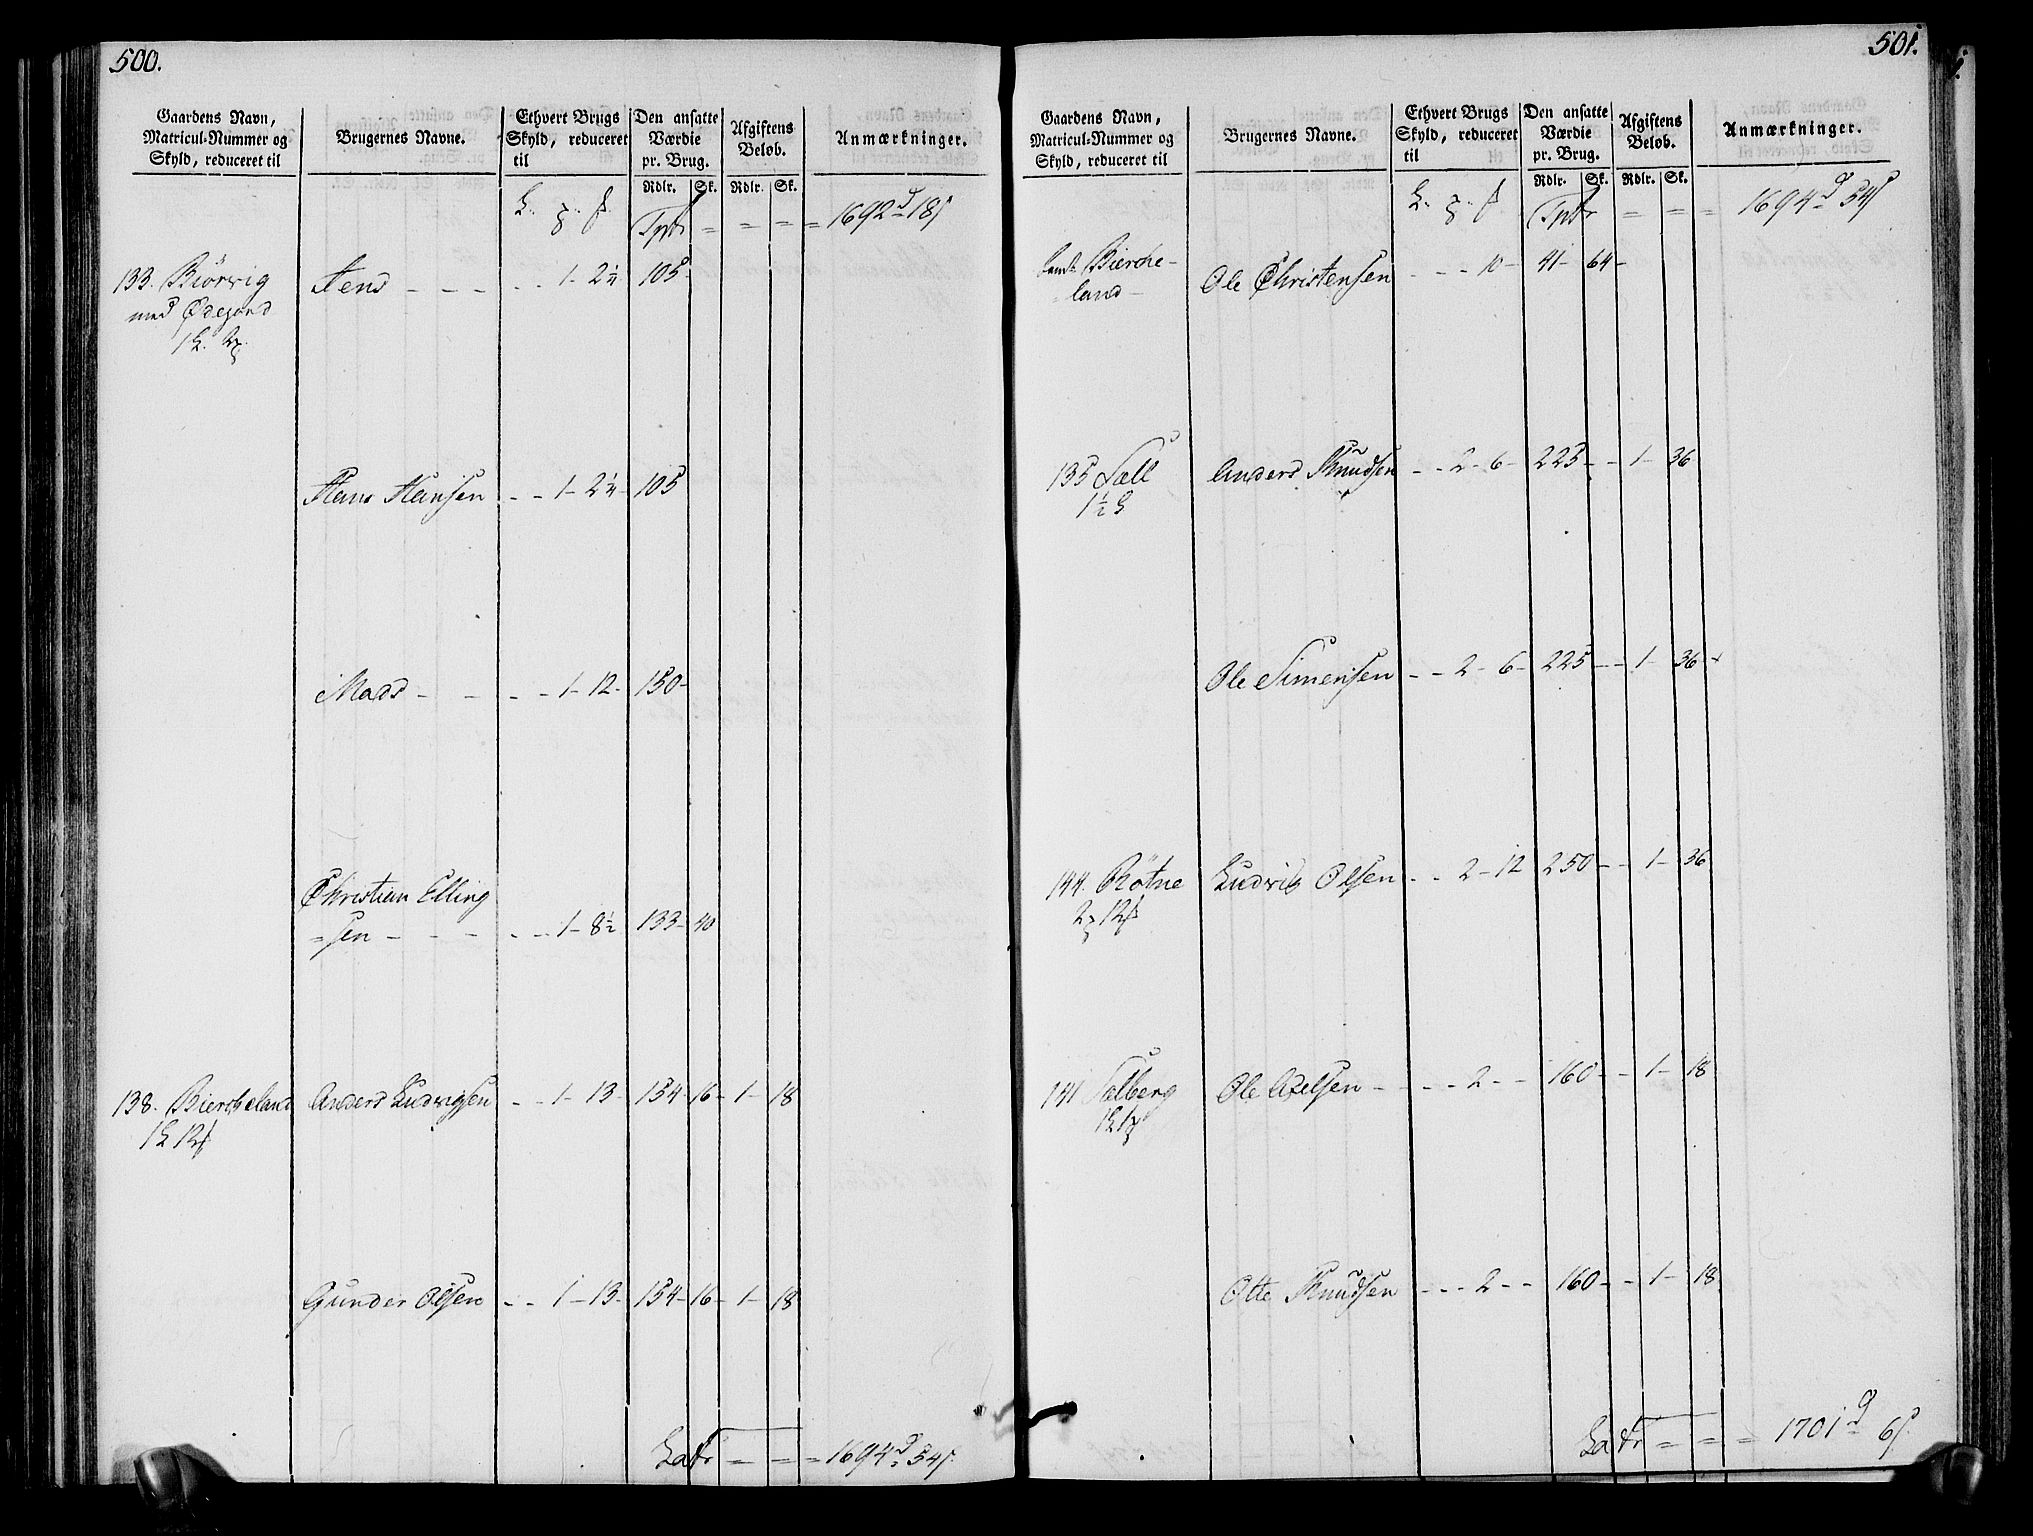 500.
Gaardens Navn, Matricul-Nummer og Skyld, reduceret til
Brugernes Navne.
Ethvert Brugs Skyld, reduceret til
Den ansatte Værdie pr. Brug.
Afgiftens Beløb.
Anmærkninger.
Rdlr. Sk. Rdlr. Sk.
Tptr = = = = 1692 d 18 s
133. Biörvig Jens - - - - - 1 - 2 1/4 - 105 -
med Ødegaard
1 L. 2
Hans Hansen - - 1 - 2 1/4 - 105
Mads - - - - 1 - 12 - 150 -
Christian Elling
= sen - - - - - 1 - 8 1/2 133 - 40
138. Biercheland Anders Ludvigsen - - 1 - 13 - 154 - 16 - 1 - 18
1 L 12 s
Gunder Olsen - - 1 - 13 - 154 - 16 - 1 - 18
Latr = = = 1694 d 54 s
501.
Gaardens Navn, Matricul-Nummer og Skyld, reduceret til
Brugernes Navne.
Ethvert Brugs Skyld, reduceret til
Den ansatte Værdie pr. Brug.
Afgiftens Beløb.
Anmærkninger.
Rdlr. Sk. Rdlr. Sk.
Tptr = = = 1694 d 54 s
Bierche-
land - Ole Christensen - - - 10 - 41 - 64 -
135 Sæll Anders Knudsen - - 2 - 6 - 225 - - 1 - 36
1 1/2 L
Ole Simensen - - 2 - 6 - 225 - - 1 - 36
144. Rötne Ludvig Olsen - - 2 - 12 250 - - 1 - 36
2 12 s
141 Sælberg Ole Axelsen - - - - 2 - - 160 - - 1 - 18
1 L 1
Otte Knudsen - - - 2 - - 160 - - 1 - 18
Latr = = = 1701 d 6 s